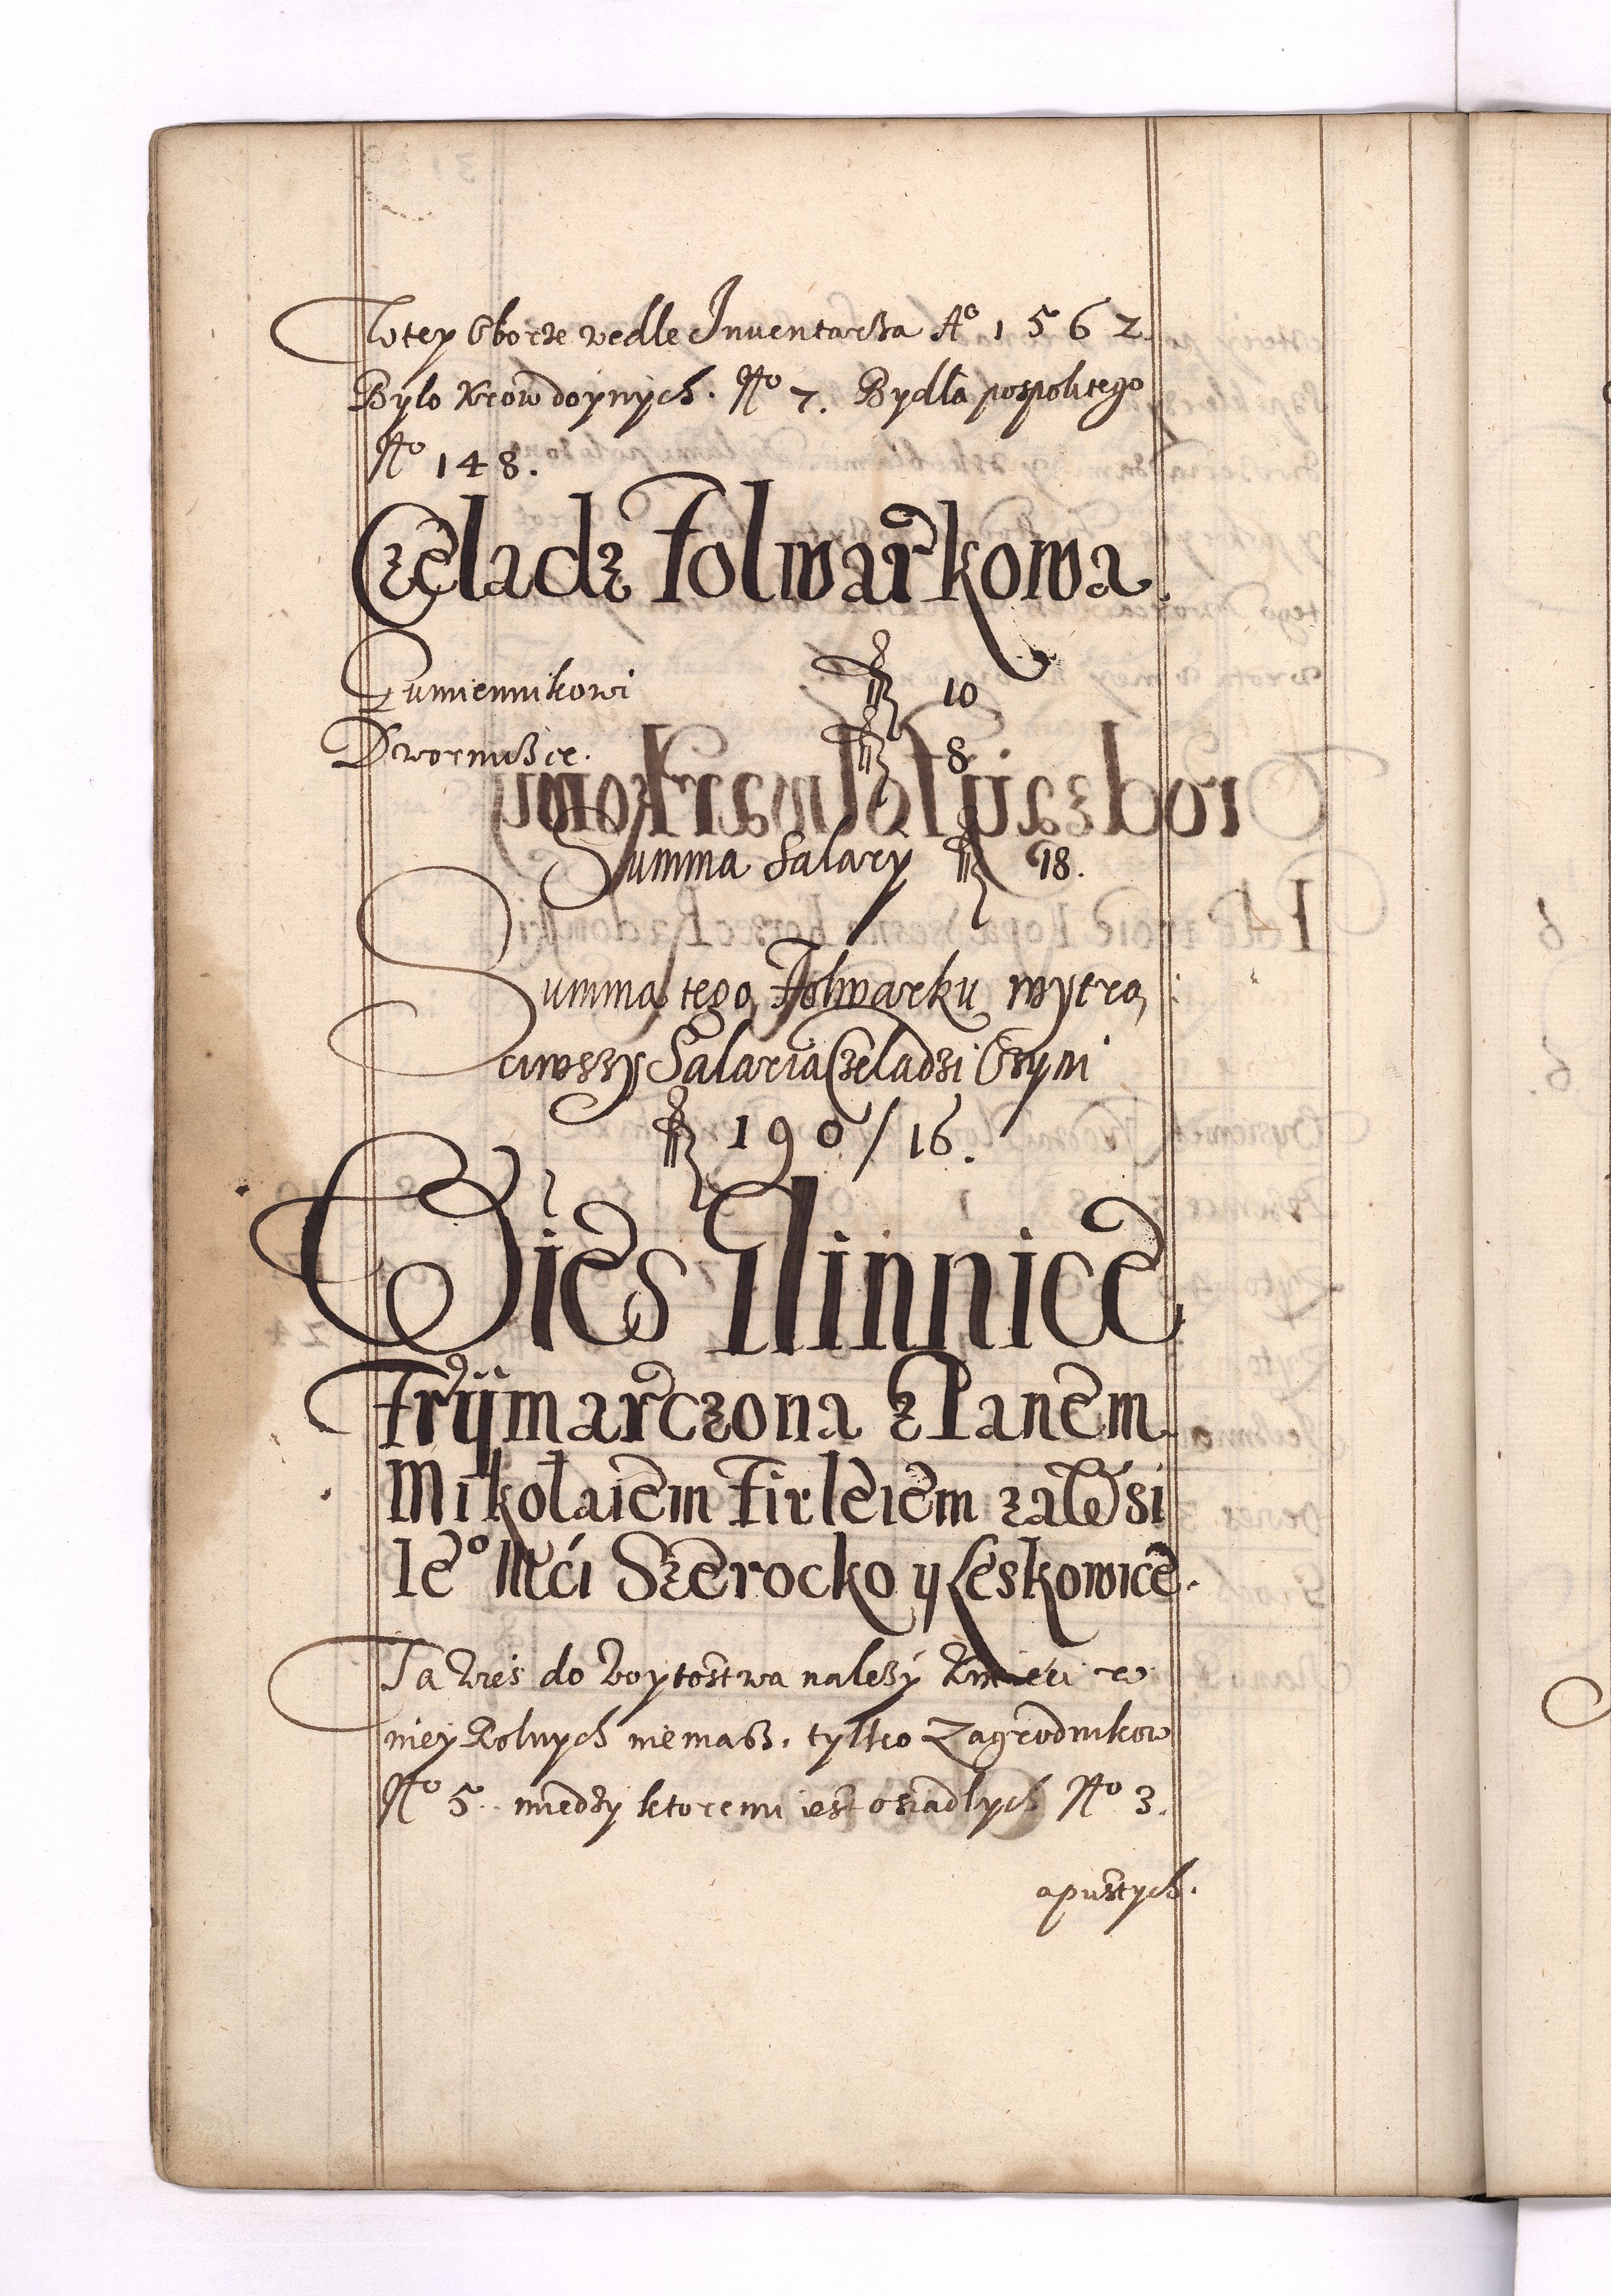 W tey oborze wedle Inuentarza Aº 1562.
Bylo Krow doynych. Nº 7. Bydła pospolitego
Nº 148.
Czeladz Folwarkowa.
Gumiennikowi fl 10
Dwornißce. fl 8
Summa Salary fl 18.
Summa tego Folwarku wytrą,
ciwszy Salaria Czeladzi Czyni
fl 190/16.
Wies Ninnice
Frijmarczona z Panem
Mikołaiem Firleiem za Wsi
Ieº Mći Szerocko y Leskowice.
Ta Wieś do Woytostwa należy Kmieci w
niey Rolnych niemaß. tylko Zagrodnikow
Nº 5. miedzy ktoremi iest osiadlych Nº 3.
apustych.